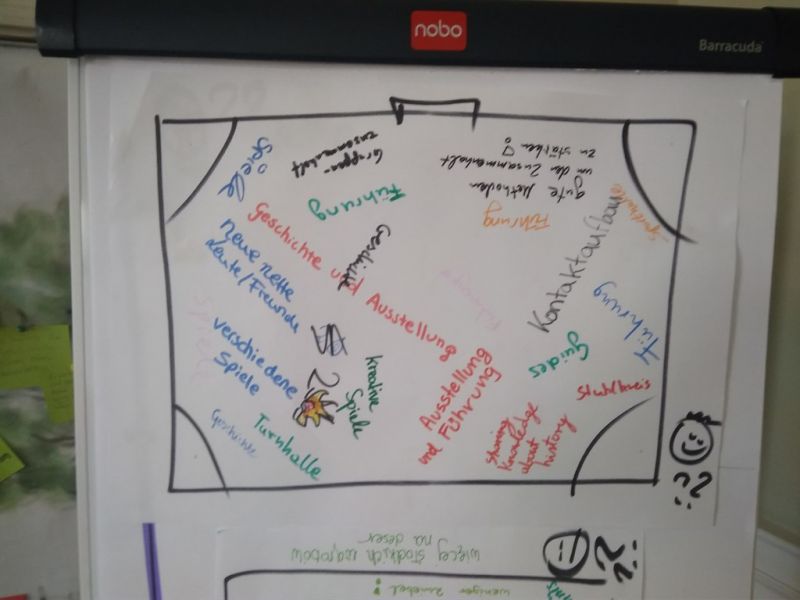 nobo
Barracuda
Spiele
Gruppen-
zusammenhalt
gute Methoden
um den Zusammenhalt
zu stärken!
Führung
Führung
Geschichte und Ausstellung
Geschichte
Kontaktaufbau
neue nette
Leute/Freunde
Führung
Spiele
verschiedene
Spiele
kreative
Spiele
Guides
Ausstellung
und Führung
Stuhlkreis
sharing
knowledge
about
history
Geschichte
Turnhalle
więcej słodkich wyrobów
na deser
weniger zwiebel!